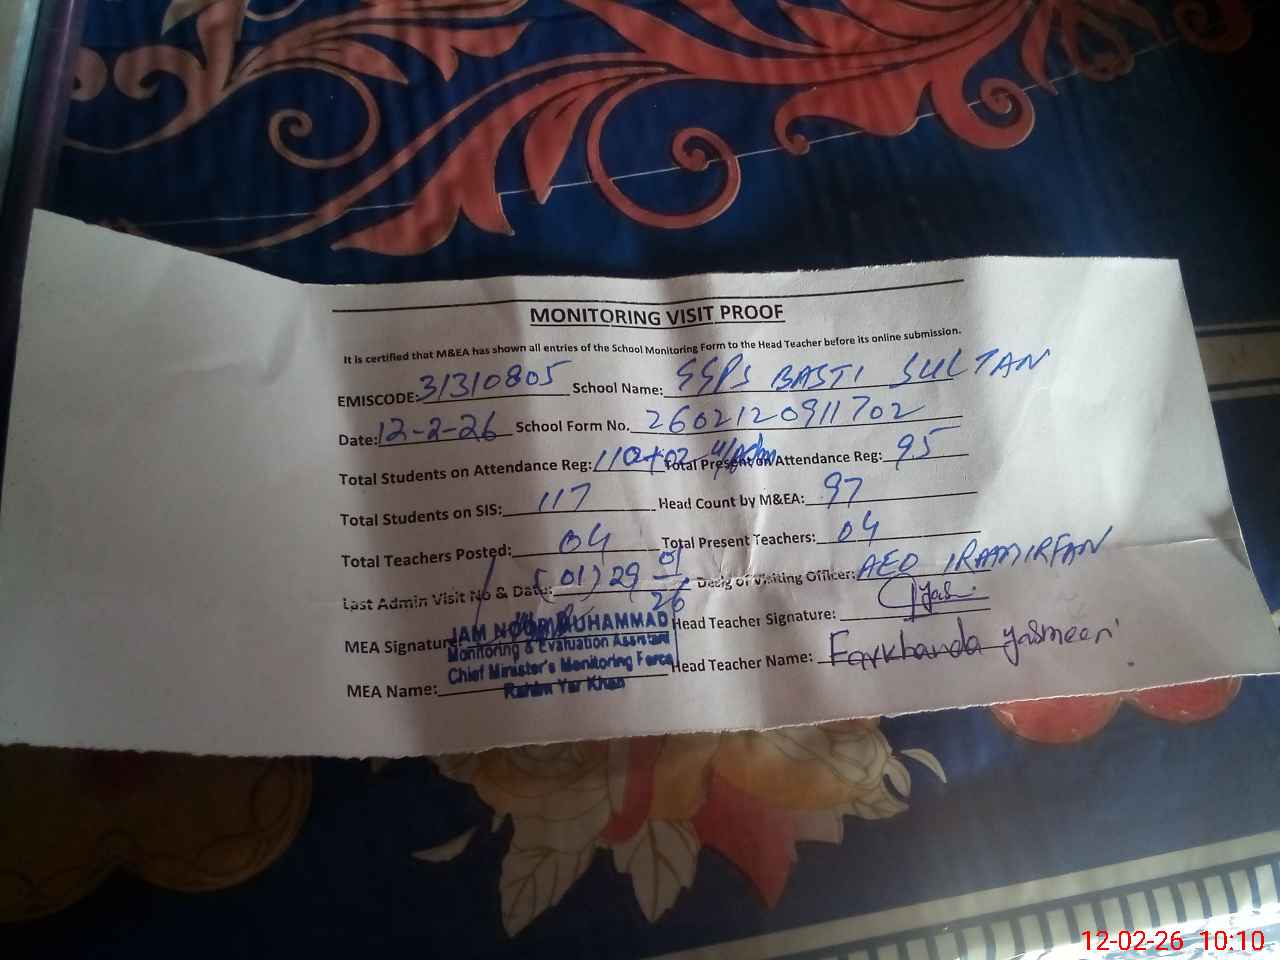 MONITORING VISIT PROOF
It is certified that M&EA has shown all entries of the School Monitoring Form to the Head Teacher before its online submission.
EMISCODE: 31310805 School Name: GGPS BASTI SULTAN
Date: 12-2-26 School Form No. 2602120911702
Total Students on Attendance Reg: 110+02 Total Present on Attendance Reg: 95
Total Students on SIS: 117 Head Count by M&EA: 97
Total Teachers Posted: 04 Total Present Teachers: 04
Last Admin Visit No & Date: (01) 29 01 26 Desig of Visiting Officer: AEO IRAM IRFAN
MEA Signature: Head Teacher Signature:
JAM NOOR MUHAMMAD
Monitoring & Evaluation Assistant
Chief Minister's Monitoring Force
Rahim Yar Khan
MEA Name: Head Teacher Name: Farkhanda Yasmeen
12-02-26 10:10